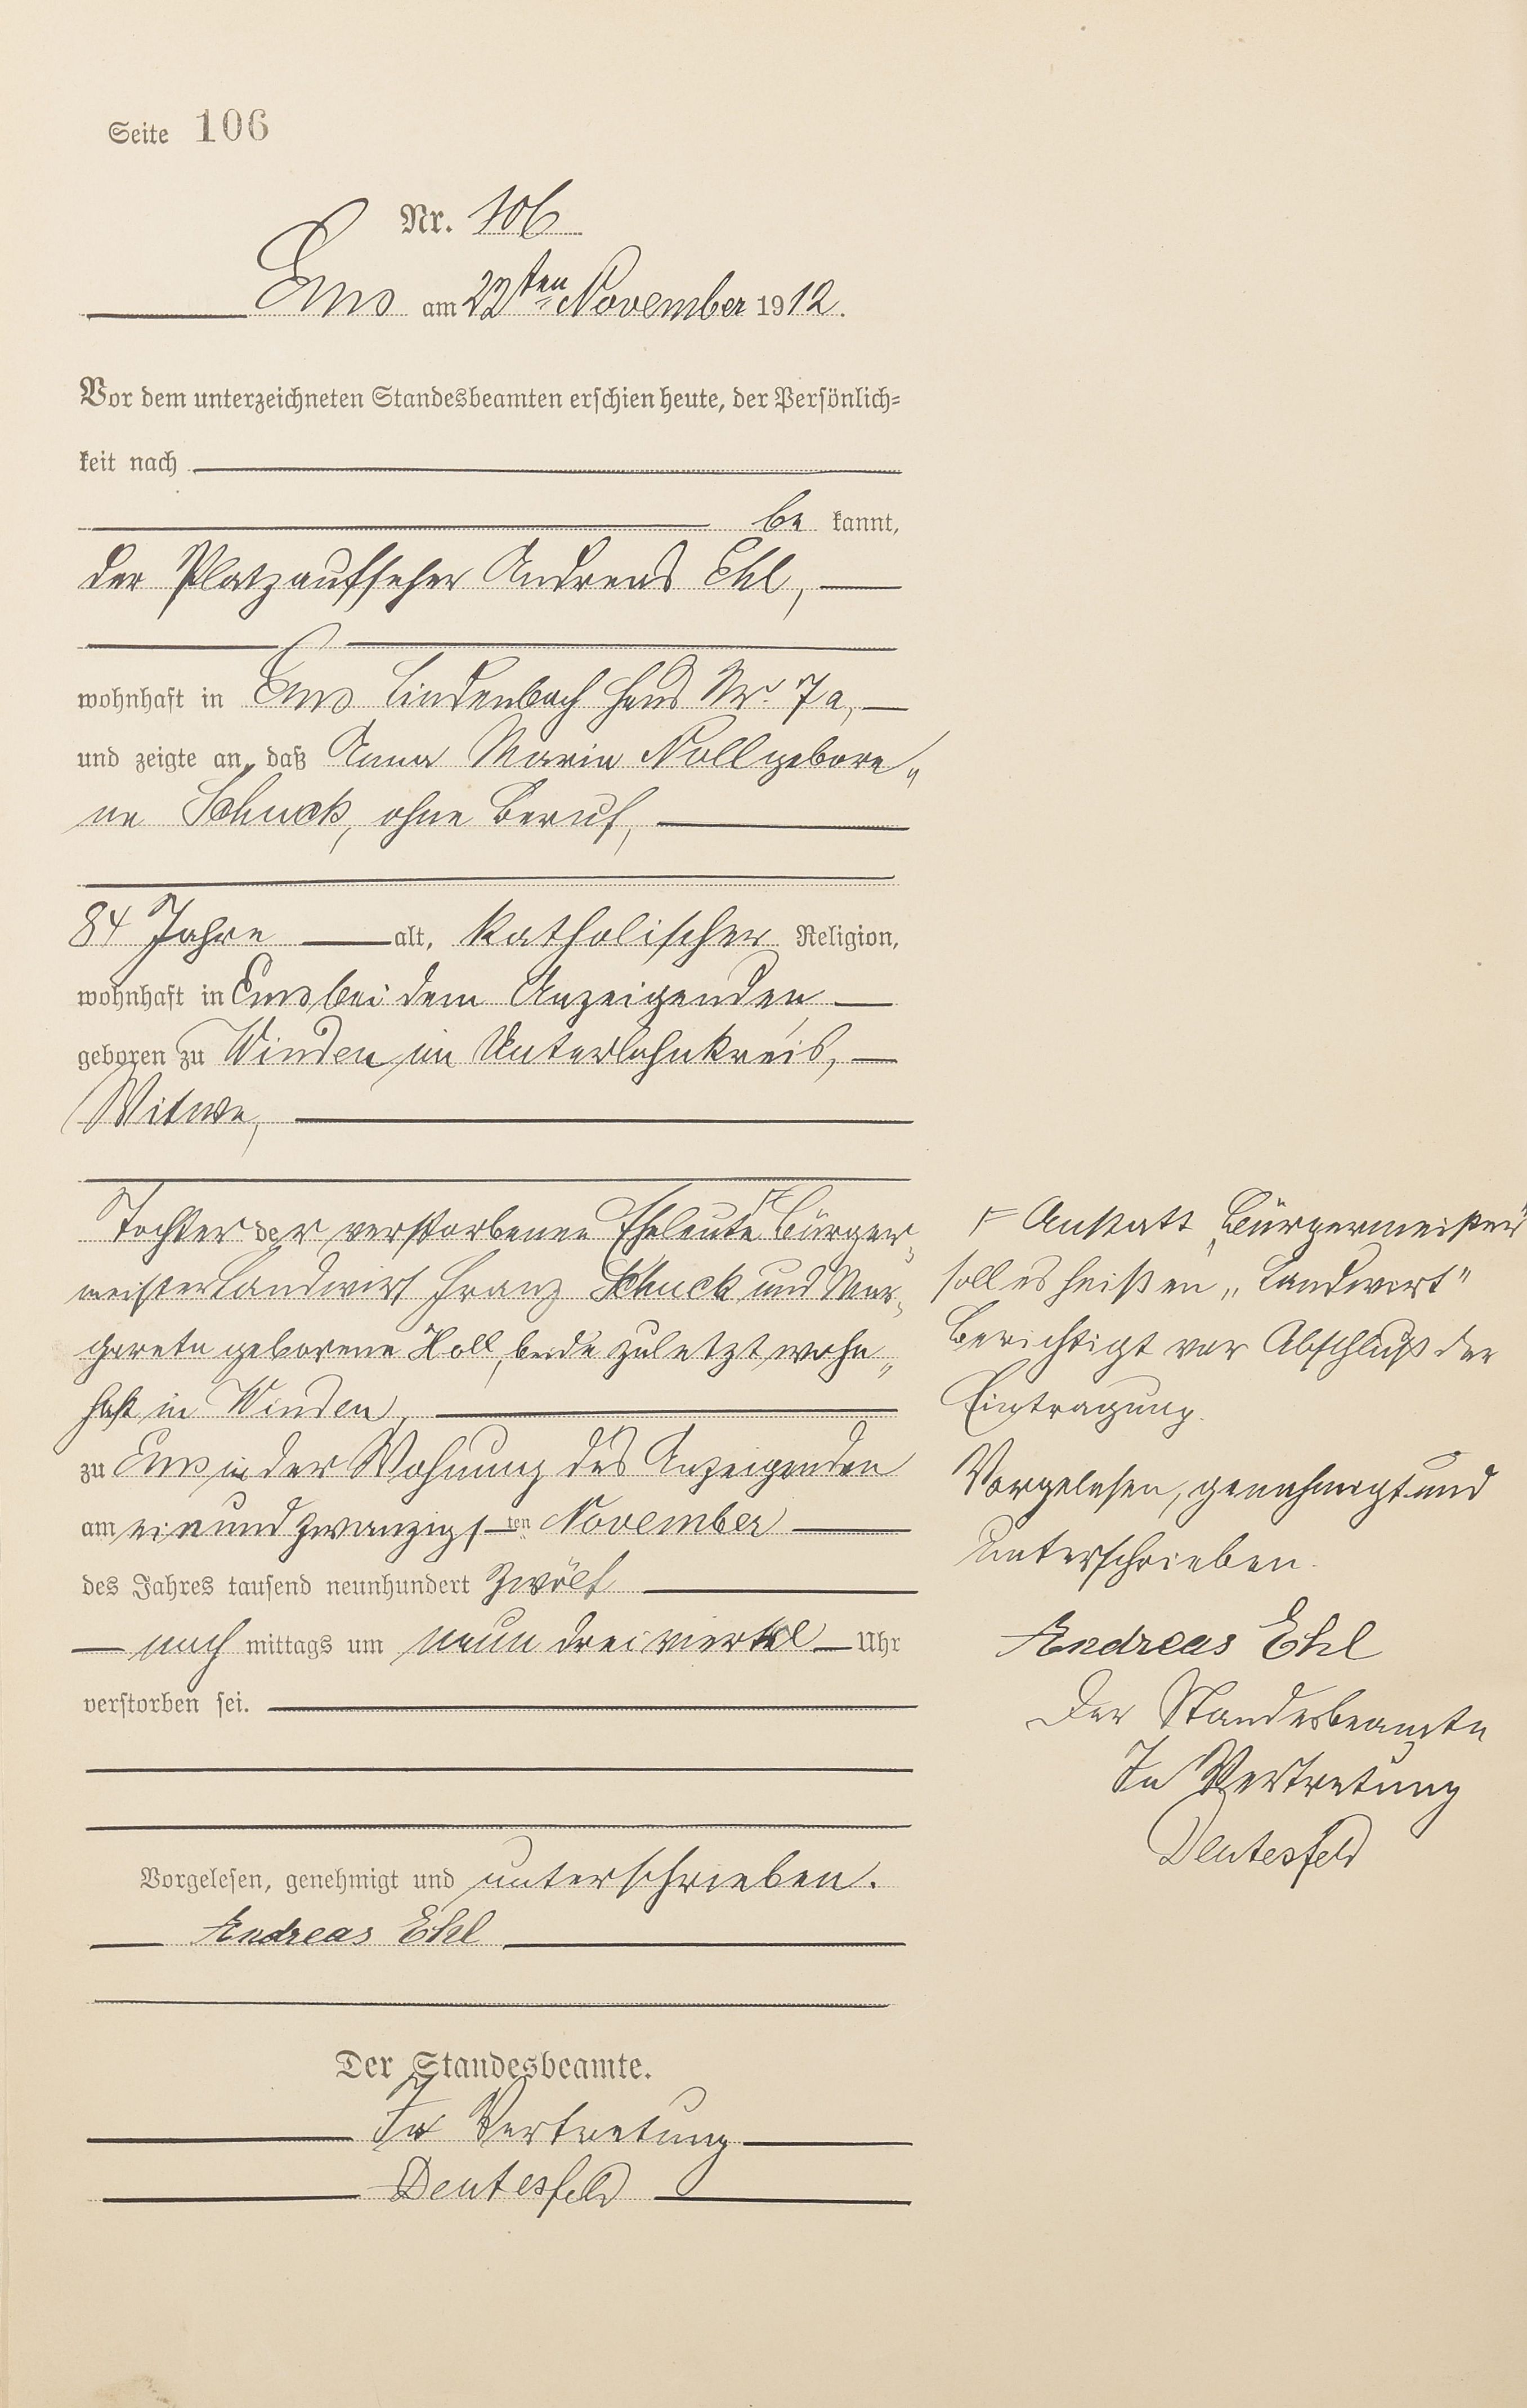 Seite 106
Nr. 106
Ems am 22ten November 1912.
Vor dem unterzeichneten Standesbeamten erschien heute, der Persönlich=
keit nach
be kannt,
der Platzaufseher Andreas Ehl,
wohnhaft in Ems Lindenbach Haus Nr. 7a,
und zeigte an, daß Anna Maria Noll gebore„
ne Schuck, ohne Beruf,
84 Jahre alt, katholischer Religion,
wohnhaft in Ems bei dem Anzeigenden
geboren zu Winden im Unterlahnkreis,
Witwe,
Tochter der verstorbenen Eheleute Bürger„
meister Landwirt Franz Schuck und Mar„
gareta geborene Noll, beide zuletzt wohn„
haft in Winden,
zu Ems in der Wohnung des Anzeigenden
am einundzwanzigs ten November
des Jahres tausend neunhundert zwölf
nach mittags um neun dreiviertel Uhr
verstorben sei.
Vorgelesen, genehmigt und unterschrieben.
Andreas Ehl
Der Standesbeamte.
In Vertretung
Deutesfeld
Anstatt „Bürgermeister"
soll es heißen „Landwirt"
Berichtigt vor Abschluß der
Eintragung.
Vorgelesen, genehmigt und
unterschrieben.
Andreas Ehl
Der Standesbeamte
In Vertretung
Deutesfeld